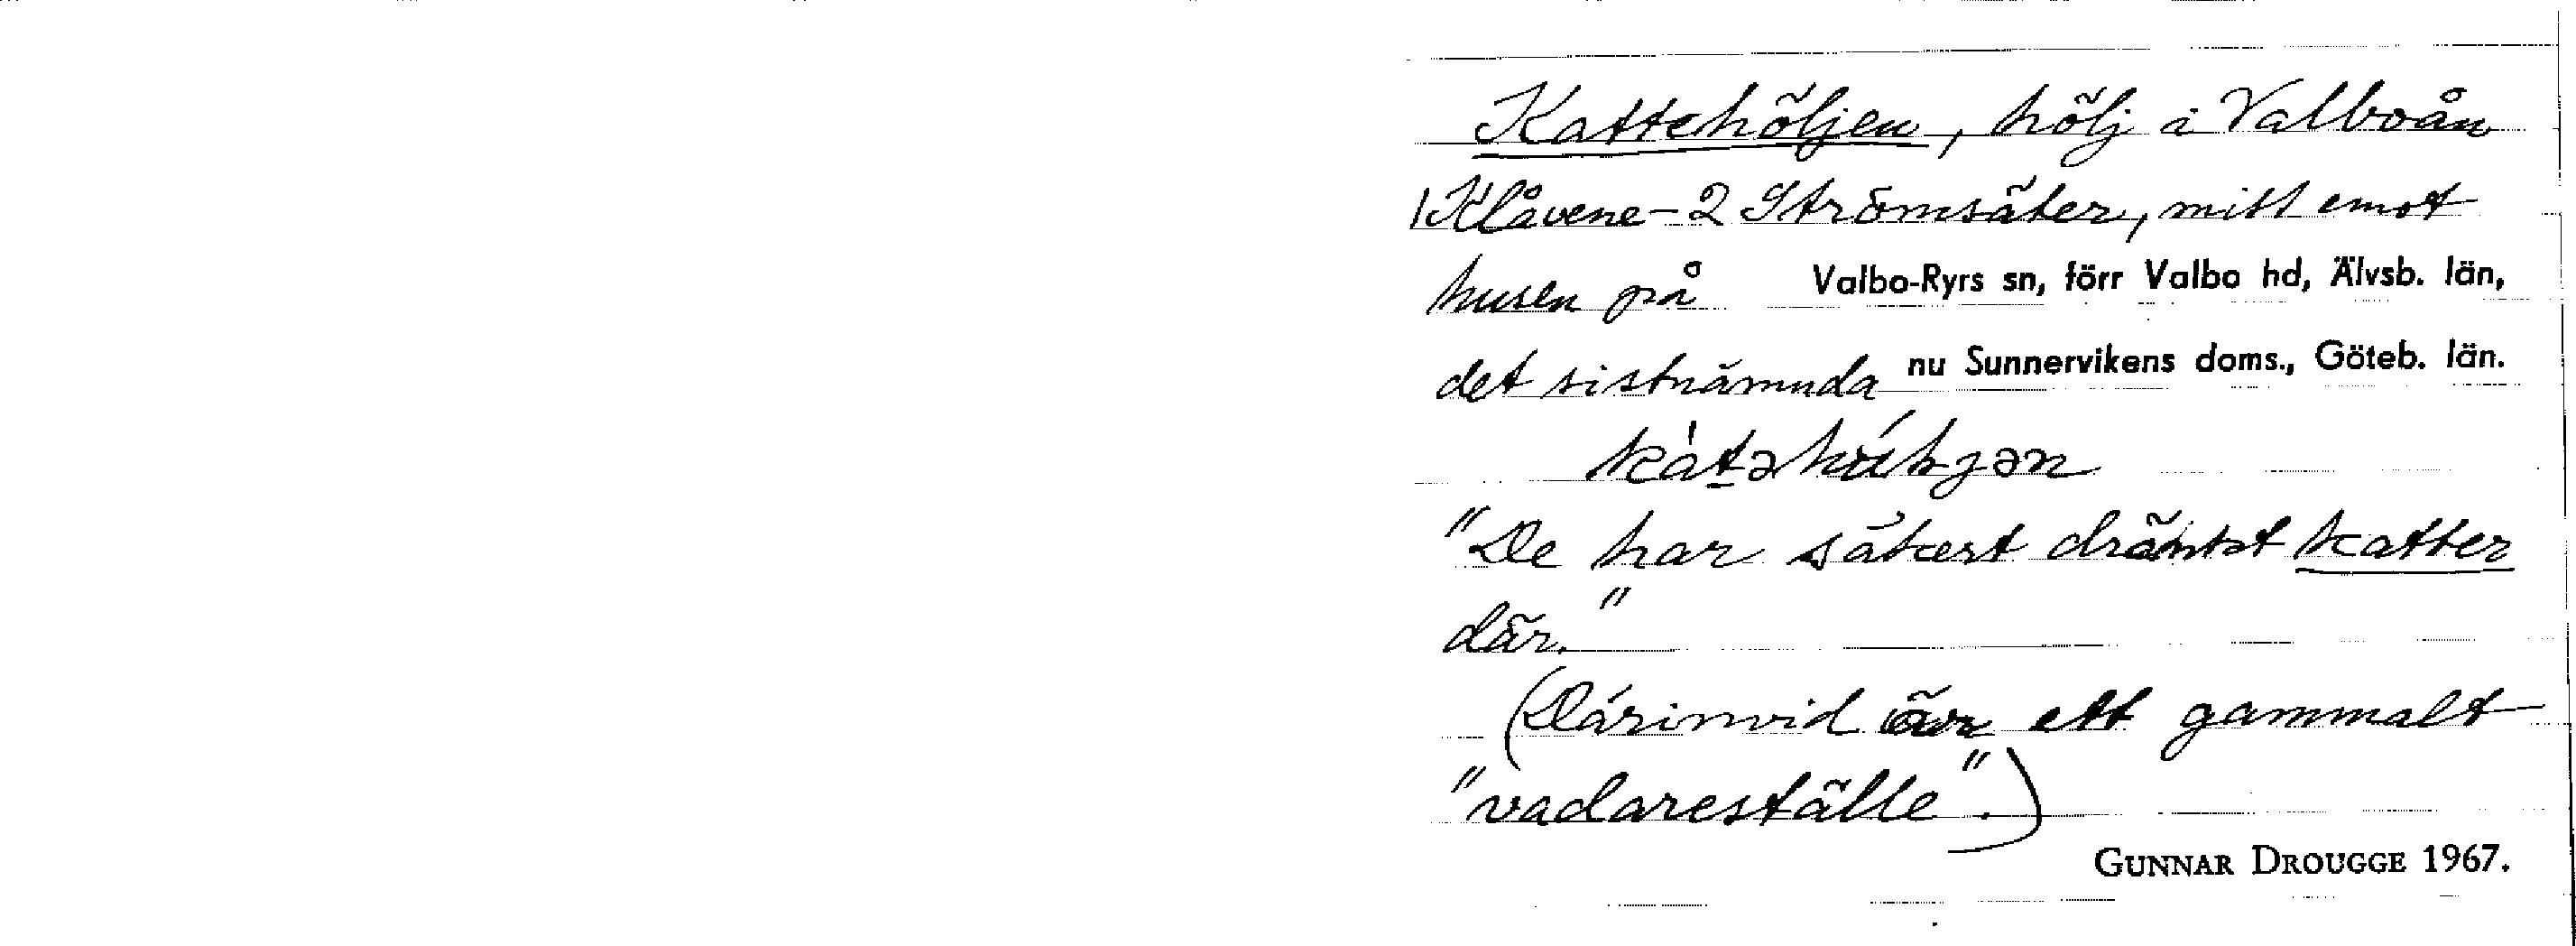 Kattehöljen, hölj i Valboån
1 Klåvene - 2 Strömsäter, mitt emot
husen på Valbo-Ryrs sn, förr Valbo hd, Älvsb. län,
det sistnämnda nu Sunnervikens doms., Göteb. län.
"De har säkert dränkt katter
där."
(Därinvid är ett gammalt
"vadareställe".)
GUNNAR DROUGGE 1967.